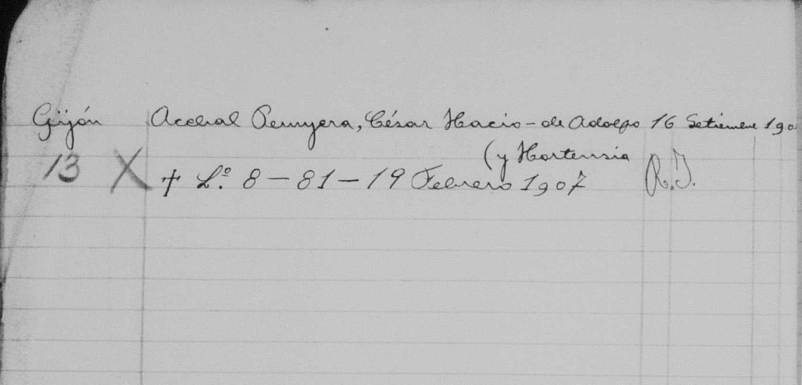 Gijón Acebal Penyera, César Hacio - de Adolfo 16 Setiembre 190
(y Hortensia
13 X † L.º 8-81-19 Febrero 1907 R.I.